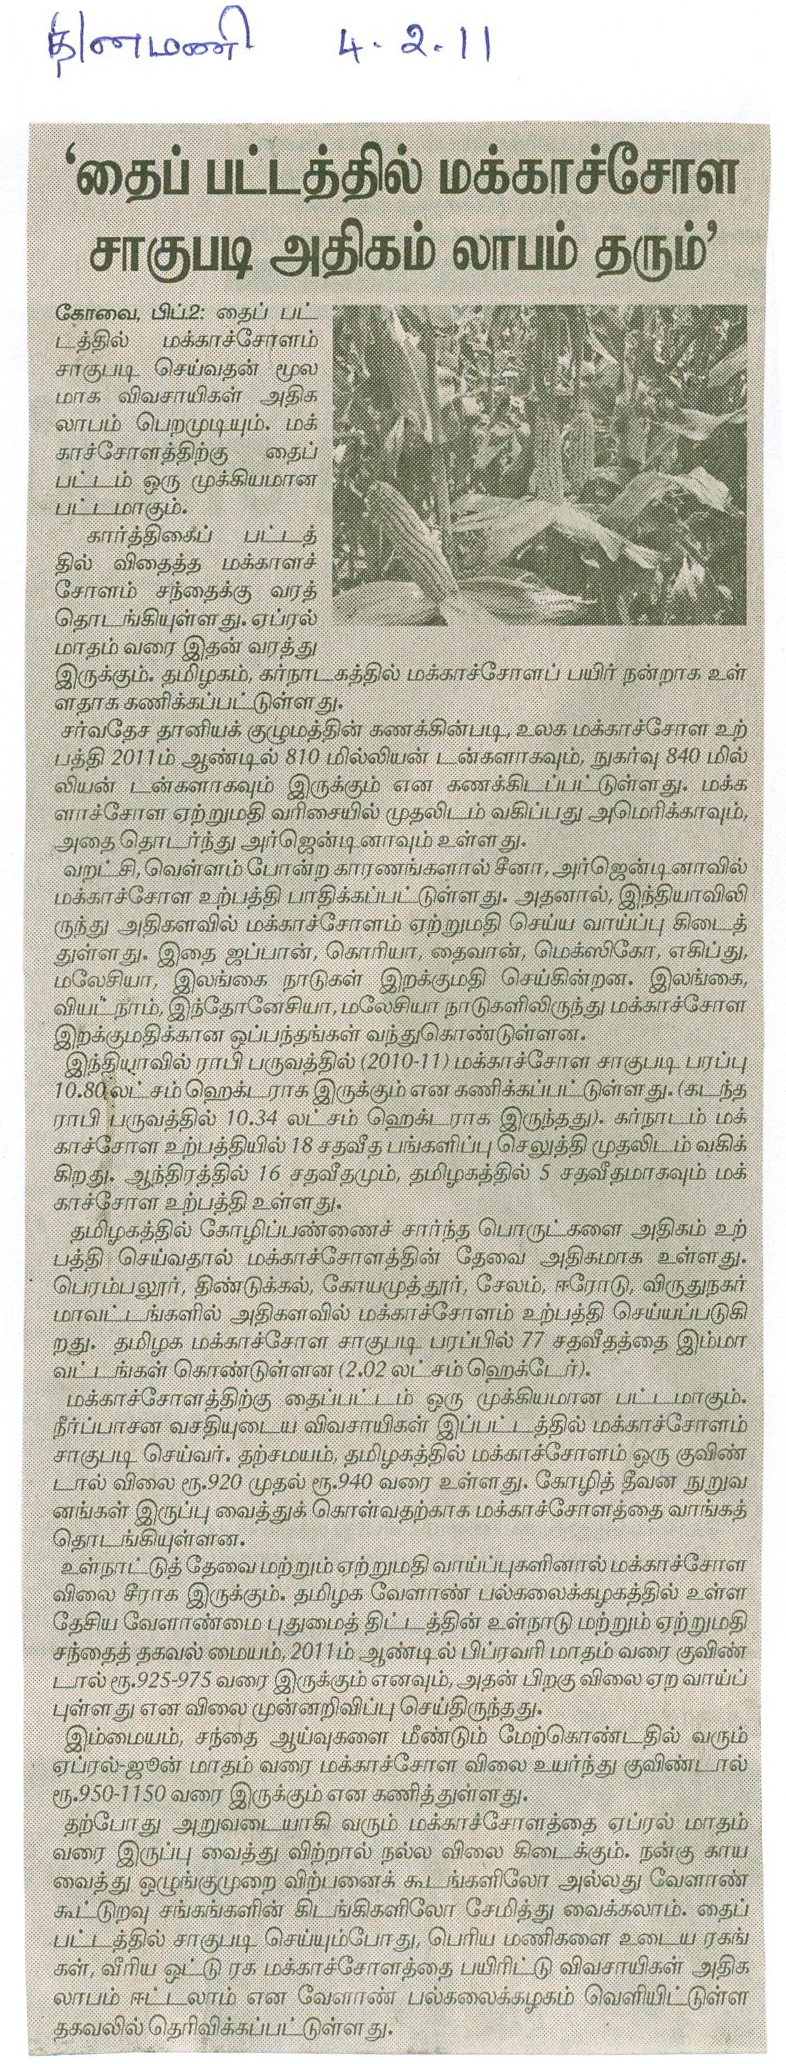 தினமணி 4.2.11
‘தைப் பட்டத்தில் மக்காச்சோள
சாகுபடி அதிகம் லாபம் தரும்’
கோவை, பிப்.2: தைப் பட்
டத்தில் மக்காச்சோளம்
சாகுபடி செய்வதன் மூல
மாக விவசாயிகள் அதிக
லாபம் பெறமுடியும். மக்
காச்சோளத்திற்கு தைப்
பட்டம் ஒரு முக்கியமான
பட்டமாகும்.
கார்த்திகைப் பட்டத்
தில் விதைத்த மக்காளச்
சோளம் சந்தைக்கு வரத்
தொடங்கியுள்ளது. ஏப்ரல்
மாதம் வரை இதன் வரத்து
இருக்கும். தமிழகம், கர்நாடகத்தில் மக்காச்சோளப் பயிர் நன்றாக உள்
ளதாக கணிக்கப்பட்டுள்ளது.
சர்வதேச தானியக் குழுமத்தின் கணக்கின்படி, உலக மக்காச்சோள உற்
பத்தி 2011ம் ஆண்டில் 810 மில்லியன் டன்களாகவும், நுகர்வு 840 மில்
லியன் டன்களாகவும் இருக்கும் என கணக்கிடப்பட்டுள்ளது. மக்க
ளாச்சோள ஏற்றுமதி வரிசையில் முதலிடம் வகிப்பது அமெரிக்காவும்,
அதை தொடர்ந்து அர்ஜென்டினாவும் உள்ளது.
வறட்சி, வெள்ளம் போன்ற காரணங்களால் சீனா, அர்ஜென்டினாவில்
மக்காச்சோள உற்பத்தி பாதிக்கப்பட்டுள்ளது. அதனால், இந்தியாவிலி
ருந்து அதிகளவில் மக்காச்சோளம் ஏற்றுமதி செய்ய வாய்ப்பு கிடைத்
துள்ளது. இதை ஜப்பான், கொரியா, தைவான், மெக்ஸிகோ, எகிப்து,
மலேசியா, இலங்கை நாடுகள் இறக்குமதி செய்கின்றன. இலங்கை,
வியட்நாம், இந்தோனேசியா, மலேசியா நாடுகளிலிருந்து மக்காச்சோள
இறக்குமதிக்கான ஒப்பந்தங்கள் வந்துகொண்டுள்ளன.
இந்தியாவில் ராபி பருவத்தில் (2010-11) மக்காச்சோள சாகுபடி பரப்பு
10.80 லட்சம் ஹெக்டராக இருக்கும் என கணிக்கப்பட்டுள்ளது. (கடந்த
ராபி பருவத்தில் 10.34 லட்சம் ஹெக்டராக இருந்தது). கர்நாடம் மக்
காச்சோள உற்பத்தியில் 18 சதவீத பங்களிப்பு செலுத்தி முதலிடம் வகிக்
கிறது. ஆந்திரத்தில் 16 சதவீதமும், தமிழகத்தில் 5 சதவீதமாகவும் மக்
காச்சோள உற்பத்தி உள்ளது.
தமிழகத்தில் கோழிப்பண்ணைச் சார்ந்த பொருட்களை அதிகம் உற்
பத்தி செய்வதால் மக்காச்சோளத்தின் தேவை அதிகமாக உள்ளது.
பெரம்பலூர், திண்டுக்கல், கோயமுத்தூர், சேலம், ஈரோடு, விருதுநகர்
மாவட்டங்களில் அதிகளவில் மக்காச்சோளம் உற்பத்தி செய்யப்படுகி
றது. தமிழக மக்காச்சோள சாகுபடி பரப்பில் 77 சதவீதத்தை இம்மா
வட்டங்கள் கொண்டுள்ளன (2.02 லட்சம் ஹெக்டேர்).
மக்காச்சோளத்திற்கு தைப்பட்டம் ஒரு முக்கியமான பட்டமாகும்.
நீர்ப்பாசன வசதியுடைய விவசாயிகள் இப்பட்டத்தில் மக்காச்சோளம்
சாகுபடி செய்வர். தற்சமயம், தமிழகத்தில் மக்காச்சோளம் ஒரு குவிண்
டால் விலை ரூ.920 முதல் ரூ.940 வரை உள்ளது. கோழித் தீவன நுறுவ
னங்கள் இருப்பு வைத்துக் கொள்வதற்காக மக்காச்சோளத்தை வாங்கத்
தொடங்கியுள்ளன.
உள்நாட்டுத் தேவை மற்றும் ஏற்றுமதி வாய்ப்புகளினால் மக்காச்சோள
விலை சீராக இருக்கும். தமிழக வேளாண் பல்கலைக்கழகத்தில் உள்ள
தேசிய வேளாண்மை புதுமைத் திட்டத்தின் உள்நாடு மற்றும் ஏற்றுமதி
சந்தைத் தகவல் மையம், 2011ம் ஆண்டில் பிப்ரவரி மாதம் வரை குவிண்
டால் ரூ.925-975 வரை இருக்கும் எனவும், அதன் பிறகு விலை ஏற வாய்ப்
புள்ளது என விலை முன்னறிவிப்பு செய்திருந்தது.
இம்மையம், சந்தை ஆய்வுகளை மீண்டும் மேற்கொண்டதில் வரும்
ஏப்ரல்-ஜூன் மாதம் வரை மக்காச்சோள விலை உயர்ந்து குவிண்டால்
ரூ.950-1150 வரை இருக்கும் என கணித்துள்ளது.
தற்போது அறுவடையாகி வரும் மக்காச்சோளத்தை ஏப்ரல் மாதம்
வரை இருப்பு வைத்து விற்றால் நல்ல விலை கிடைக்கும். நன்கு காய
வைத்து ஒழுங்குமுறை விற்பனைக் கூடங்களிலோ அல்லது வேளாண்
கூட்டுறவு சங்கங்களின் கிடங்கிகளிலோ சேமித்து வைக்கலாம். தைப்
பட்டத்தில் சாகுபடி செய்யும்போது, பெரிய மணிகளை உடைய ரகங்
கள், வீரிய ஒட்டு ரக மக்காச்சோளத்தை பயிரிட்டு விவசாயிகள் அதிக
லாபம் ஈட்டலாம் என வேளாண் பல்கலைக்கழகம் வெளியிட்டுள்ள
தகவலில் தெரிவிக்கப்பட்டுள்ளது.